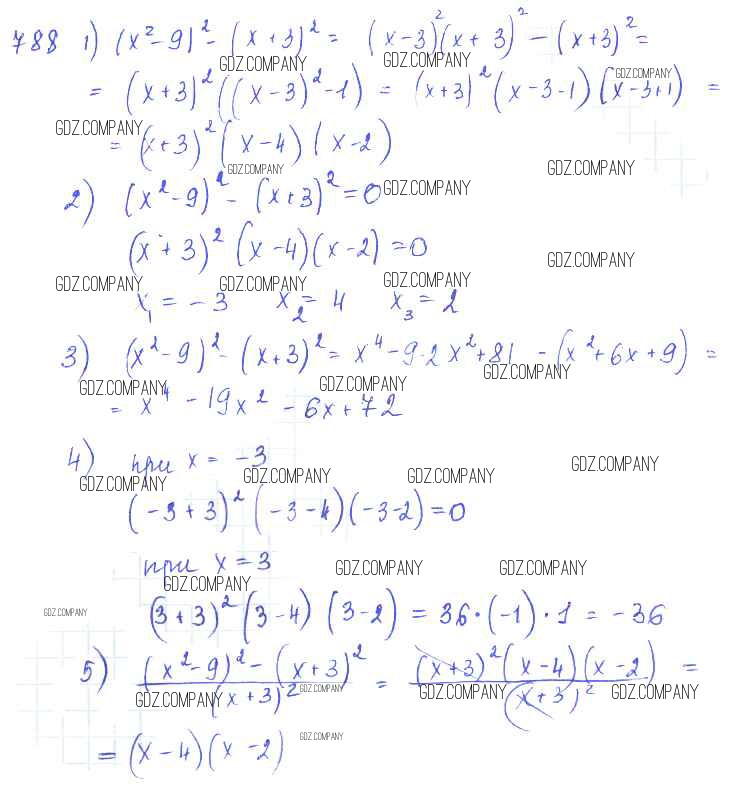 788 1) (x²-9)² - (x+3)² = (x-3)²(x+3)² - (x+3)² =
GDZ.COMPANY GDZ.COMPANY GDZ.COMPANY
= (x+3)² ((x-3)² - 1) = (x+3)² (x-3-1)(x-3+1) =
GDZ.COMPANY
= (x+3)² (x-4)(x-2)
GDZ.COMPANY GDZ.COMPANY
2) (x²-9)² - (x+3)² = 0 GDZ.COMPANY
(x+3)² (x-4)(x-2) = 0
GDZ.COMPANY
GDZ.COMPANY GDZ.COMPANY GDZ.COMPANY
x₁ = -3 x₂ = 4 x₃ = 2
3) (x²-9)² - (x+3)² = x⁴ - 9·2x² + 81 - (x² + 6x + 9) =
GDZ.COMPANY GDZ.COMPANY GDZ.COMPANY
= x⁴ - 19x² - 6x + 72
4) при x = -3
GDZ.COMPANY GDZ.COMPANY GDZ.COMPANY GDZ.COMPANY
(-3+3)² (-3-4)(-3-2) = 0
при x = 3 GDZ.COMPANY GDZ.COMPANY
GDZ.COMPANY
GDZ.COMPANY
(3+3)² (3-4) (3-2) = 36·(-1)·1 = -36
5) ((x²-9)² - (x+3)²) / (x+3)² = ((x+3)² (x-4)(x-2)) / (x+3)² =
GDZ.COMPANY GDZ.COMPANY GDZ.COMPANY GDZ.COMPANY
= (x-4)(x-2) GDZ.COMPANY